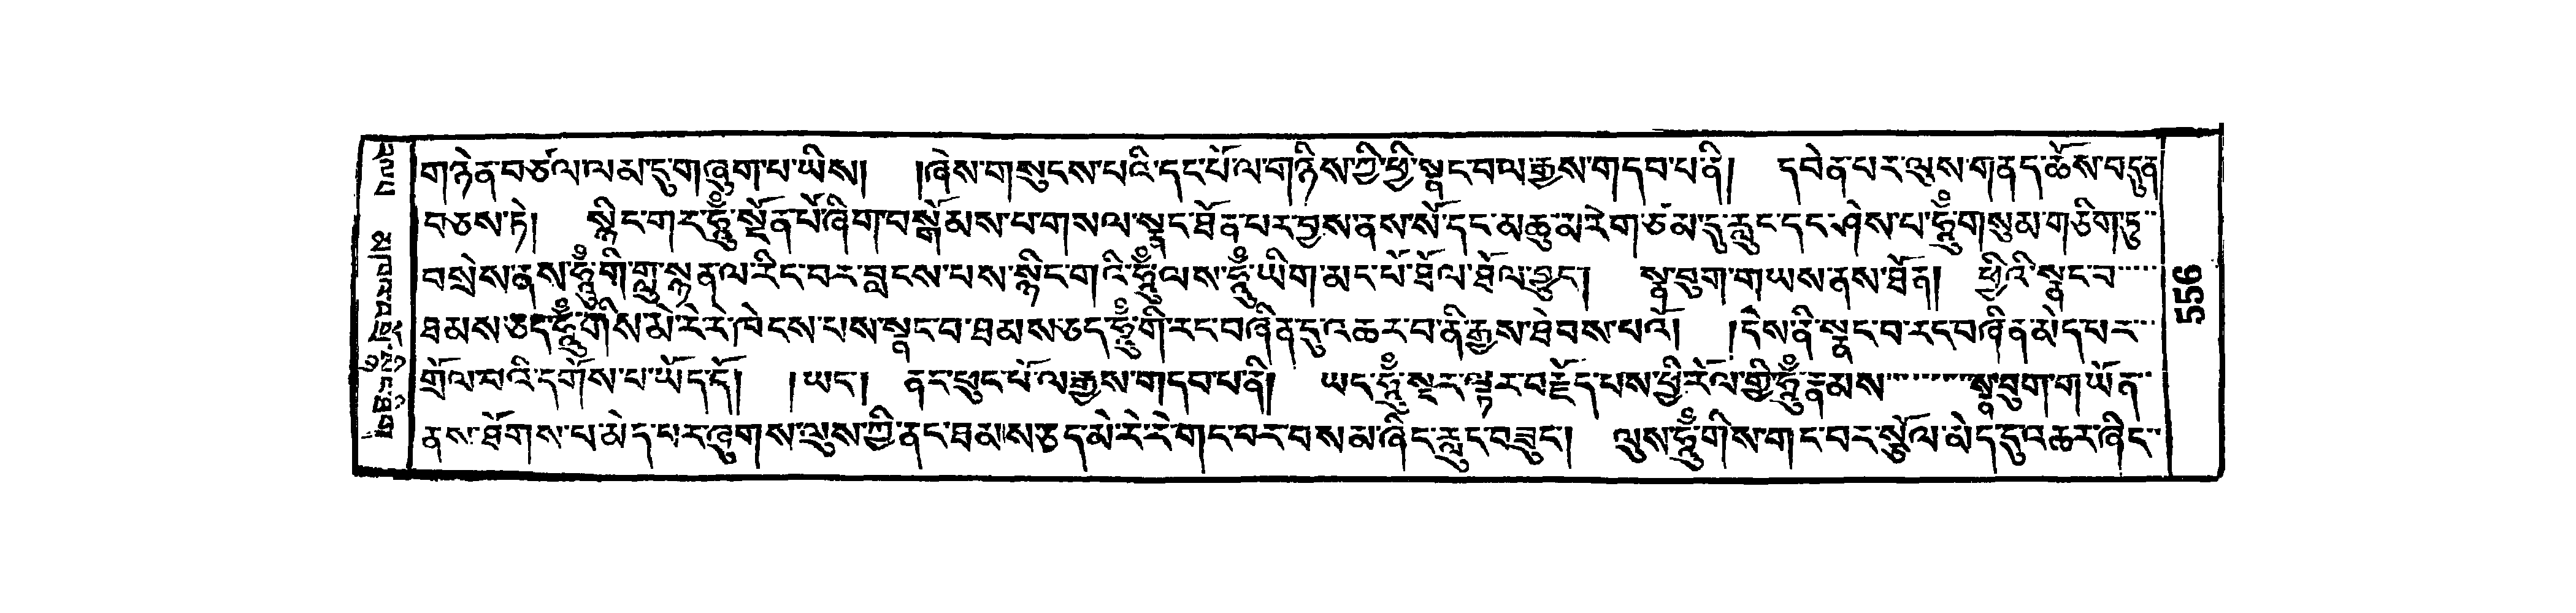 གཉེན་བཙལ་ལམ་དུ་གཞུག་པ་ཡིས། །ཞེས་གསུངས་པའི་དང་པོ་ལ་གཉིས་ཀྱི་ཕྱི་སྣང་བལ་རྒྱས་གདབ་པ་ནི། དབེན་པར་ལུས་གནད་ཆོས་བདུན
བཅས་ཏེ། སྙིང་གར་ཧཱུྃ་སྔོན་པོ་ཞིག་བསྒོམས་པ་གསལ་སྣང་ཐོན་པར་བྱས་ནས་སོ་དང་མཆུ་མ་རེག་ཙམ་དུ་རླུང་དང་ཤེས་པ་ཧཱུྃ་གསུམ་གཅིག་ཏུ་
བསྲེས་ནས་ཧཱུྃ་གི་གླུ་སྙན་ལ་རིང་བར་བླངས་པས་སྙིང་གའི་ཧཱུྃ་ལས་ཧཱུྃ་ཡིག་མང་པོ་ཐོལ་ཐོལ་བྱུང་། སྣ་བུག་གཡས་ནས་ཐོན། ཕྱིའི་སྣང་བ་
ཐམས་ཅད་ཧཱུྃ་གིས་མེ་རེ་རེ་ཁེངས་པས་སྣང་བ་ཐམས་ཅད་ཧཱུྃ་གི་རང་བཞིན་དུ་འཆར་བ་ནི་རྒྱས་ཐེབས་པའོ། །དེས་ནི་སྣང་བ་རང་བཞིན་མེད་པར་
གྲོལ་བའི་དགོས་པ་ཡོད་དོ། །ཡང་། ནང་ཕུང་པོ་ལ་རྒྱས་གདབ་པ་ནི། ཡང་ཧཱུྃ་སྔར་ལྟར་བརྗོད་པས་ཕྱི་རོལ་གྱི་ཧཱུྃ་རྣམས་སྣ་བུག་གཡོན་
ནས་ཐོགས་པ་མེད་པར་ཞུགས་ལུས་ཀྱི་ནང་ཐམས་ཅད་མེ་རེ་རེ་གང་བར་བསམ་ཞིང་རླུང་བཟུང་། ལུས་ཧཱུྃ་གིས་གང་བར་སྤྲོལ་མེད་དུ་འཆར་ཞིང་
556